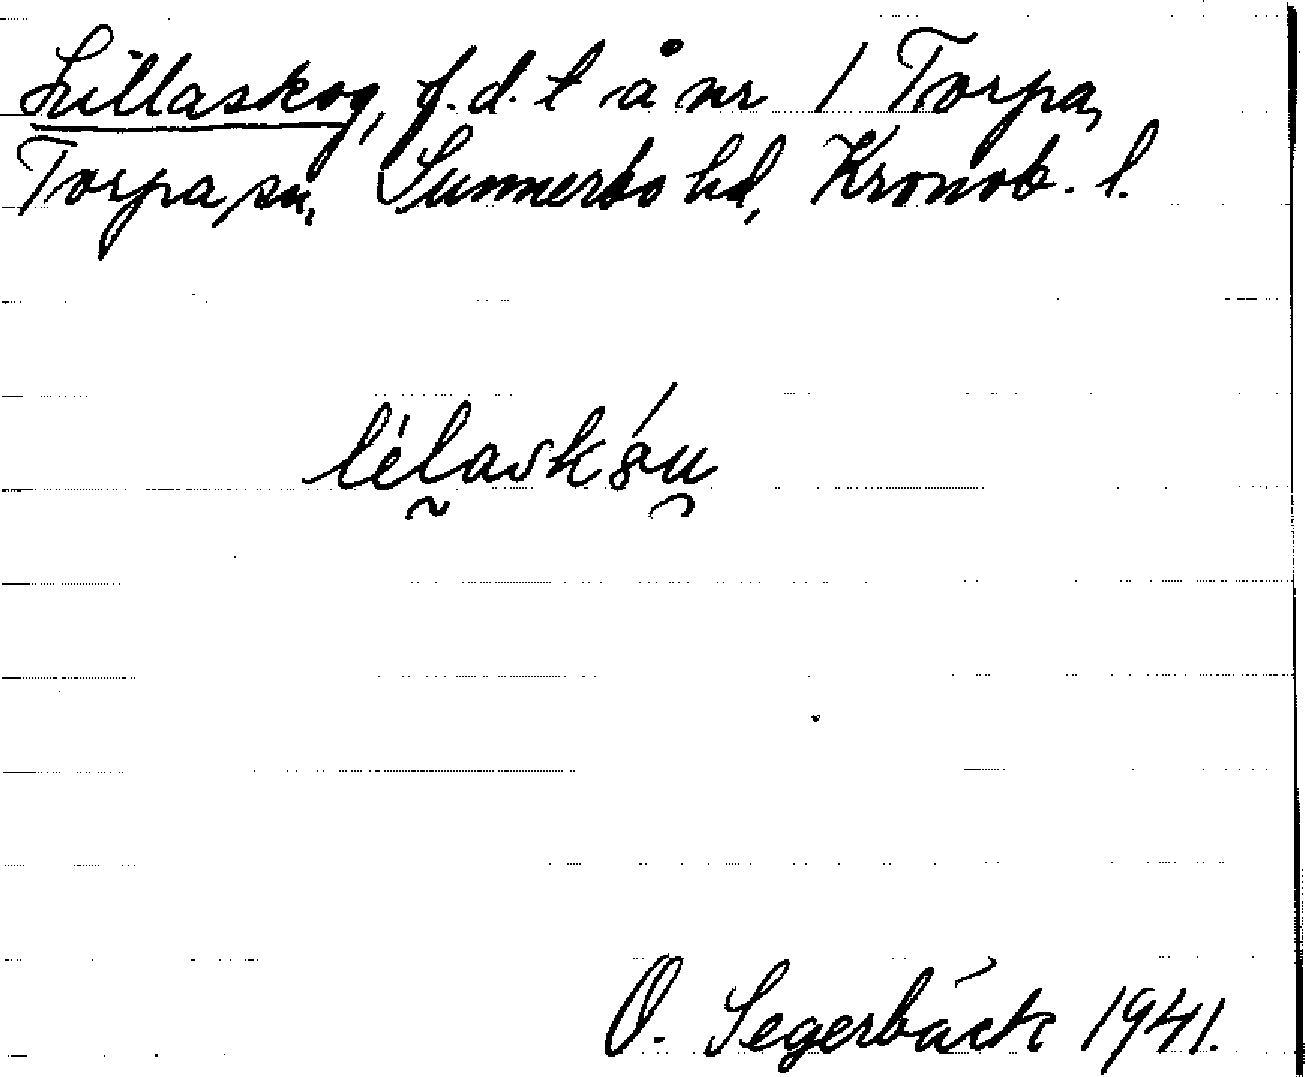 Lillaskog, f.d. t å nr 1 Torpa,
Torpa sn, Sunnerbo hd, Kronob. l.
O. Segerbäck 1941.